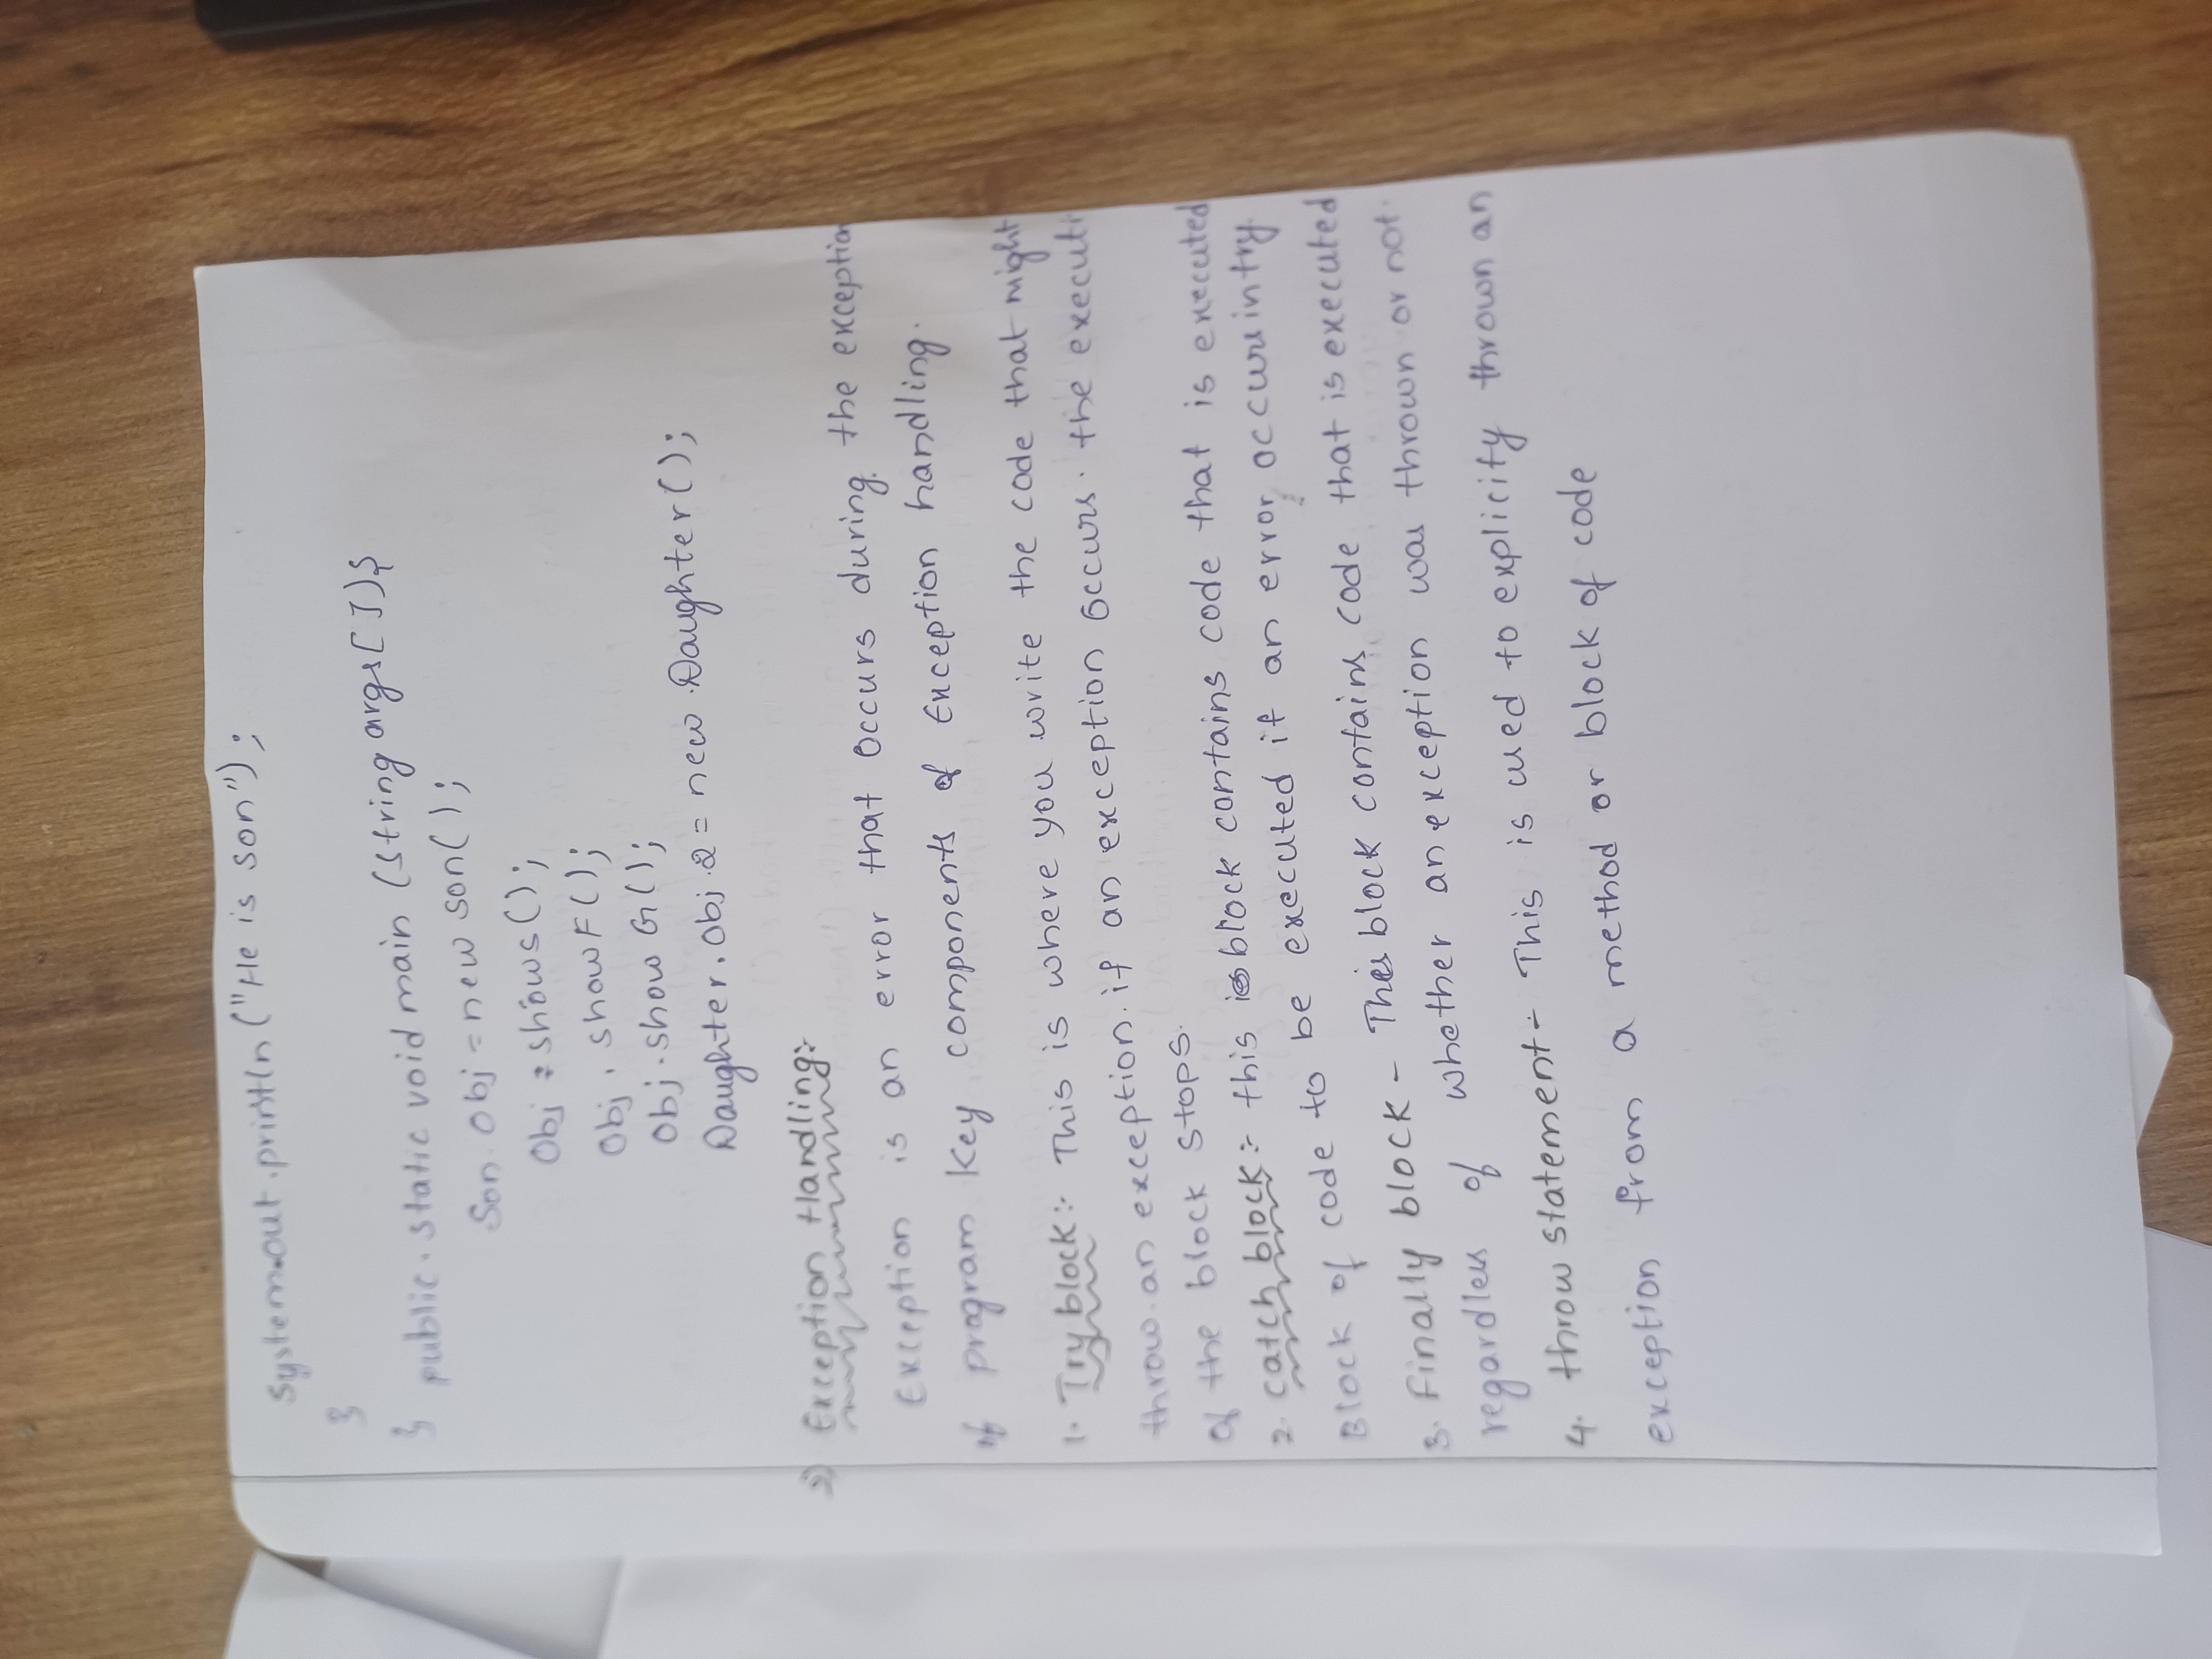 System.out.println ("He is son");
}
} public static void main (String args[]){
Son Obj = new son();
Obj . shows();
Obj . showF();
Obj . show G();
Daughter. Obj .2 = new Daughter();
2) Exception Handling:-
Exception is an error that occurs during the exception
of program Key components of Exception handling.
1. Try block:- This is where you write the code that might
throw an exception. if an exception occurs. the executi
of the block stops.
2. catch block:- this block contains code that is executed
Block of code to be executed if an error occurs in try.
3. Finally block - This block contains code that is executed
regardless of whether an exception was thrown or not.
4. throw statement- This is used to explicity thrown an
exception from a method or block of code